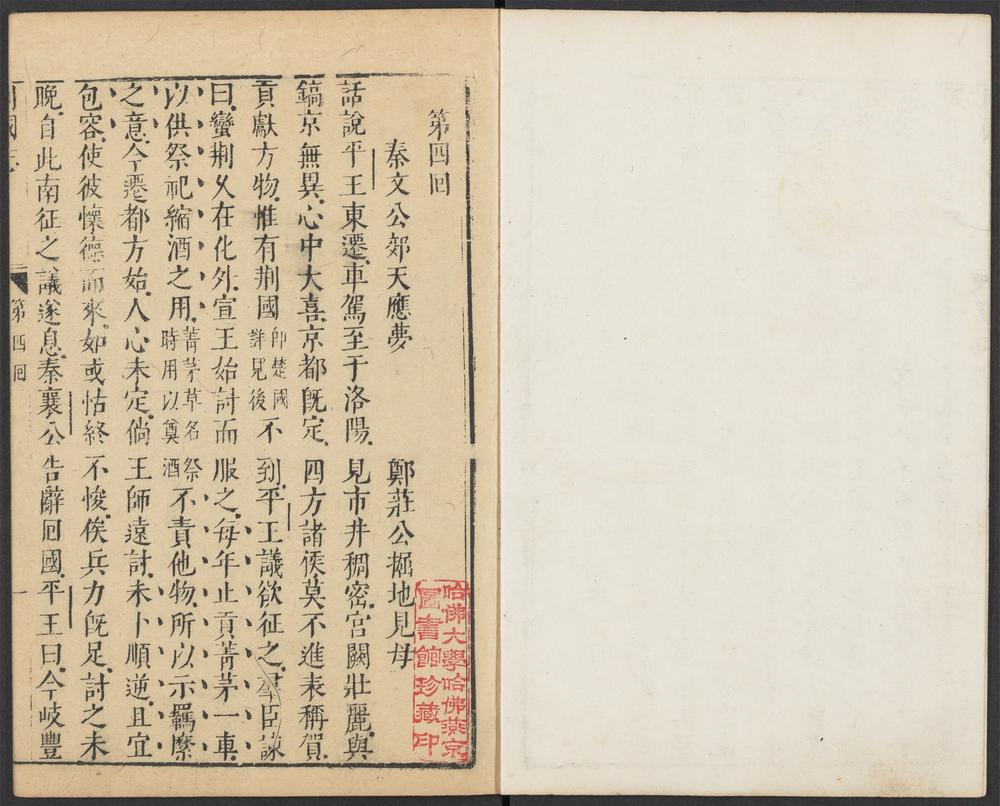 第四回
秦文公郊天應夢　鄭莊公掘地見母
話說平王東遷車駕至于洛陽見市井稠密宮闕壯麗與
鎬京無異心中大喜京都旣定四方諸侯莫不進表稱賀
貢獻方物惟有荆國卽楚國詳見後不到平王議欲征之羣臣諫
曰蠻荆久在化外宣王始討而服之每年止貢菁茅一車
以供祭祀縮酒之用菁茅草名祭時用以奠酒不責他物所以示羈縻
之意今遷都方始人心未定倘王師遠討未卜順逆且宜
包容使彼懷德而來如或怙終不悛俟兵力旣足討之未
晚自此南征之議遂息秦襄公告辭回國平王曰今岐豐
國志
第四回
一
哈佛大學哈佛燕京
圖書館珍藏印